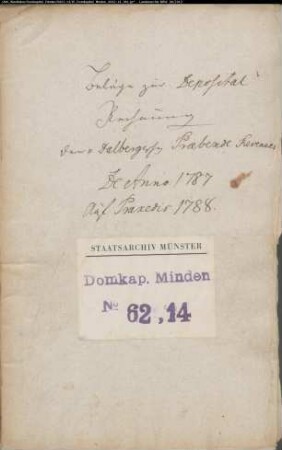 Beläge zur Deposital
Rechnung
Dalbergsch Praebende Revenues
De Anno 1787
Auf Praxedis 1788.
STAATSARCHIV MÜNSTER
Domkap. Minden
№ 62,14